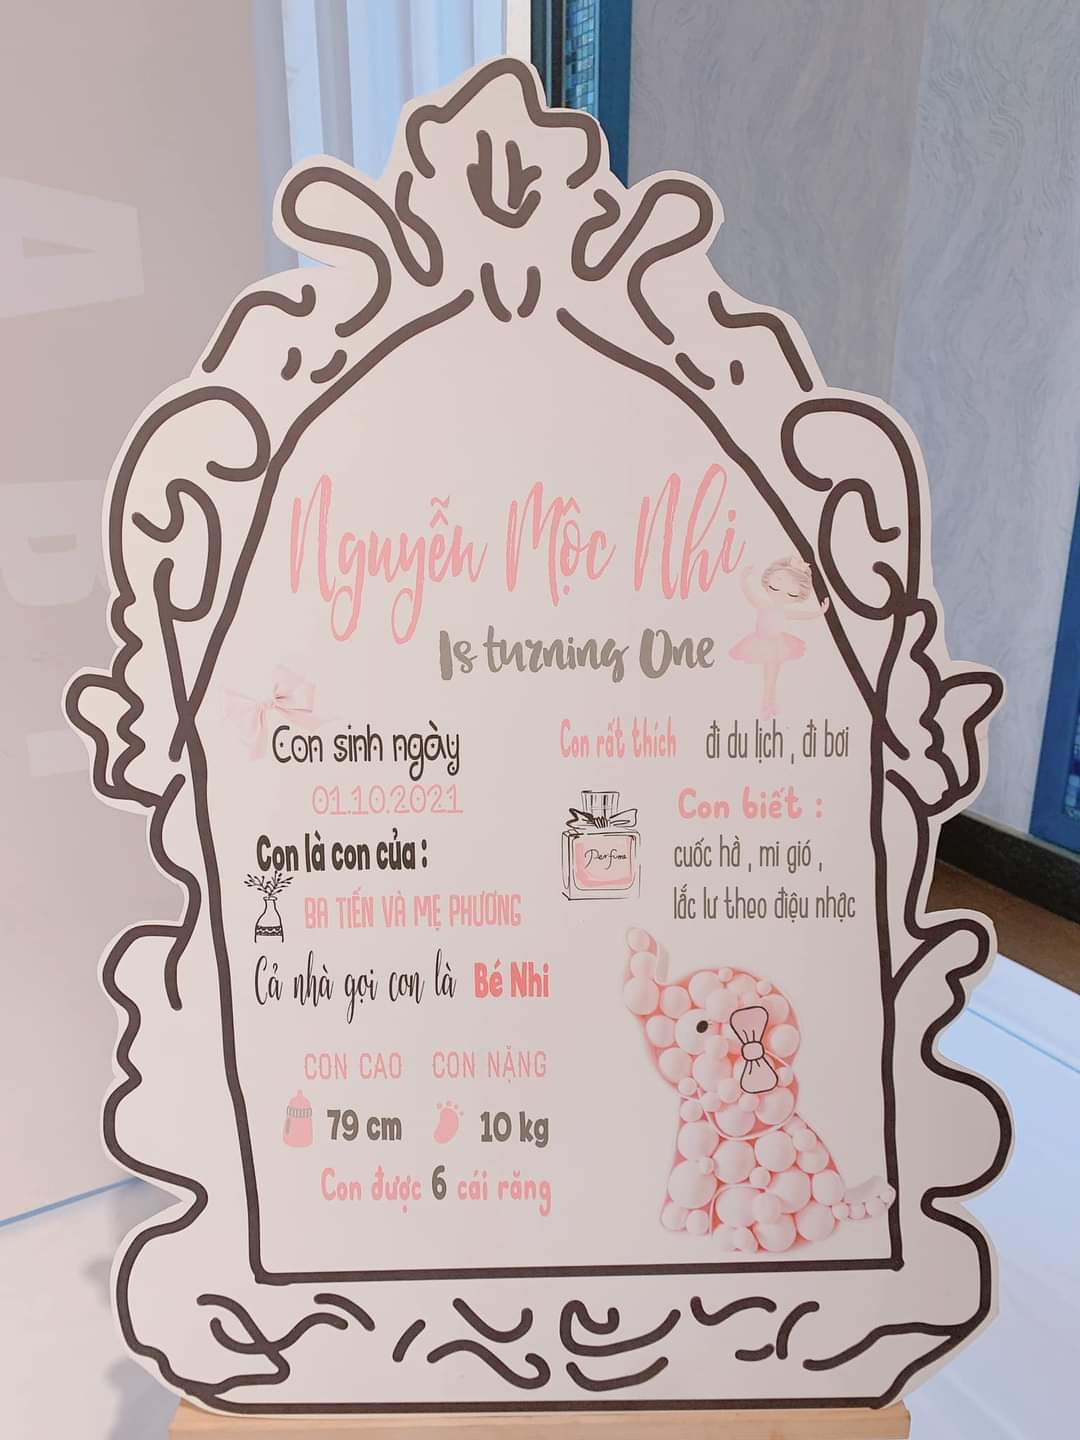 Nguyễn Mộc Nhi
Is turning One
Con sinh ngày
01.10.2021
Con là con của :
BA TIẾN VÀ MẸ PHƯƠNG
Cả nhà gọi con là Bé Nhi
CON CAO CON NẶNG
79 cm 10 kg
Con được 6 cái răng
Con rất thích đi du lịch , đi bơi
Con biết :
Perfume
cuốc hồ , mi gió ,
lắc lư theo điệu nhạc